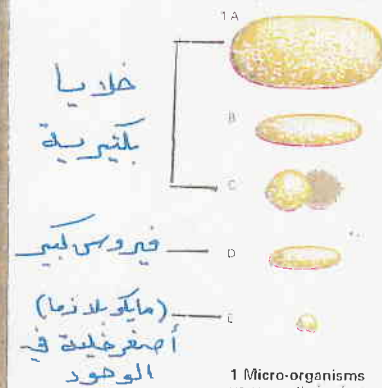 1 A
خلايا
بكتيرية
B
C
فيروس كبير
D
(مايكوبلازما)
أصغر خلية في
الوجود
E
1 Micro-organisms